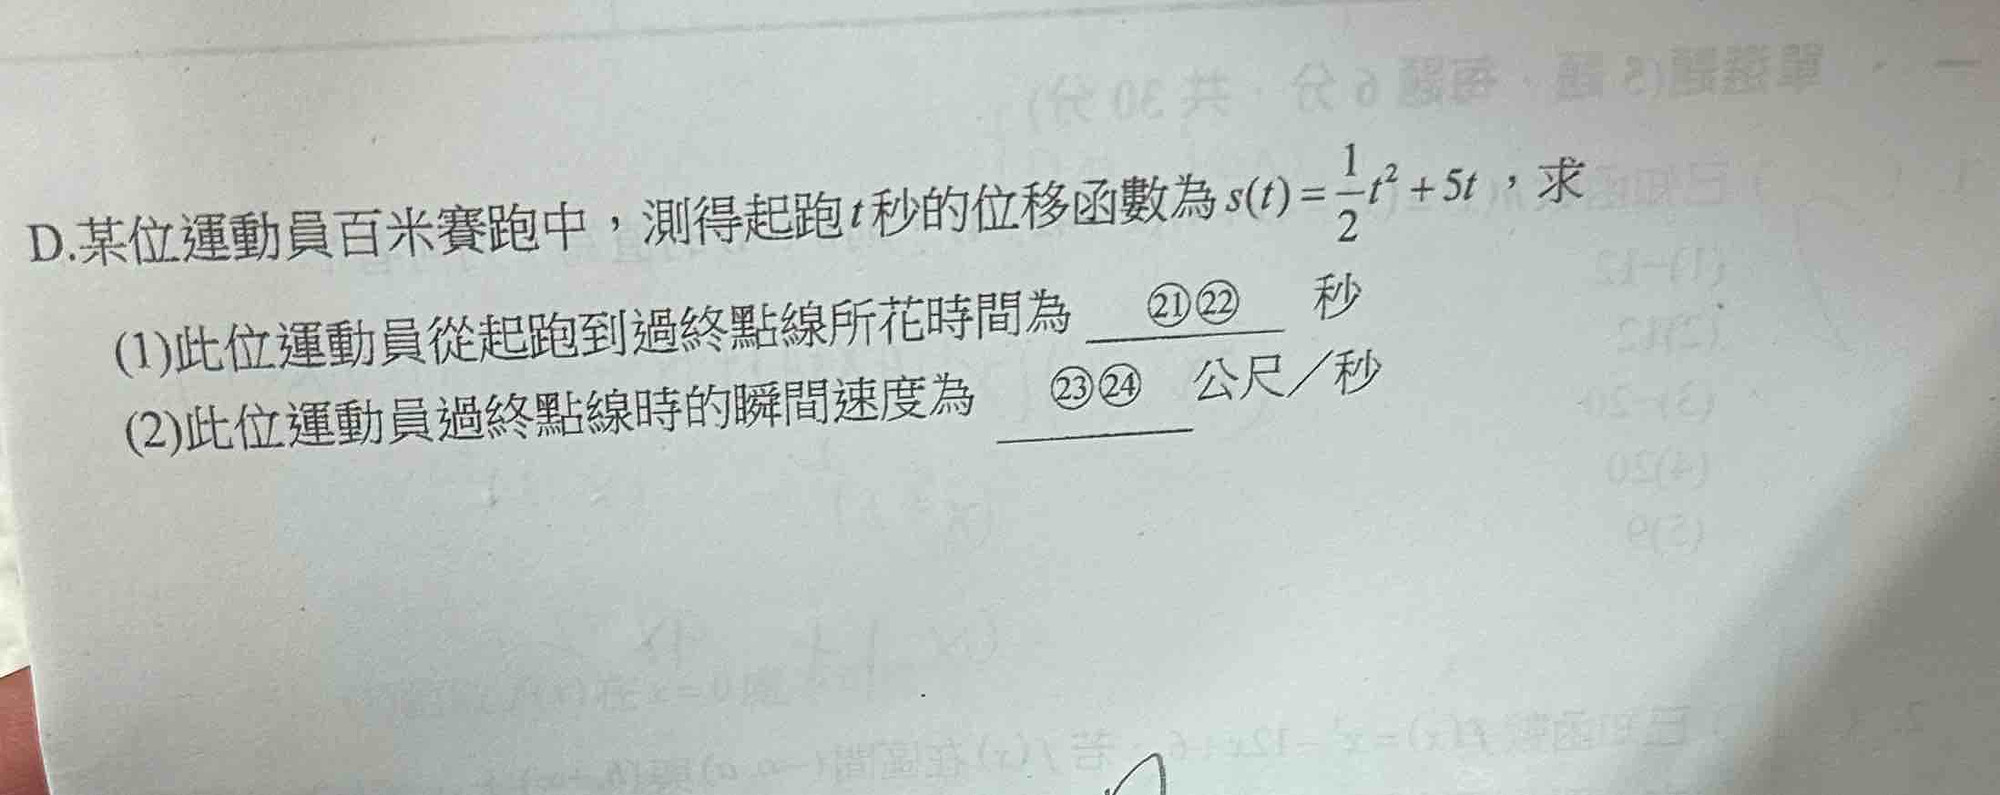 D.某位運動員百米賽跑中，測得起跑t秒的位移函數為s(t)=\frac{1}{2}t²+5t，求
(1)此位運動員從起跑到過終點線所花時間為 ㉑㉒ 秒
(2)此位運動員過終點線時的瞬間速度為 ㉓㉔ 公尺／秒